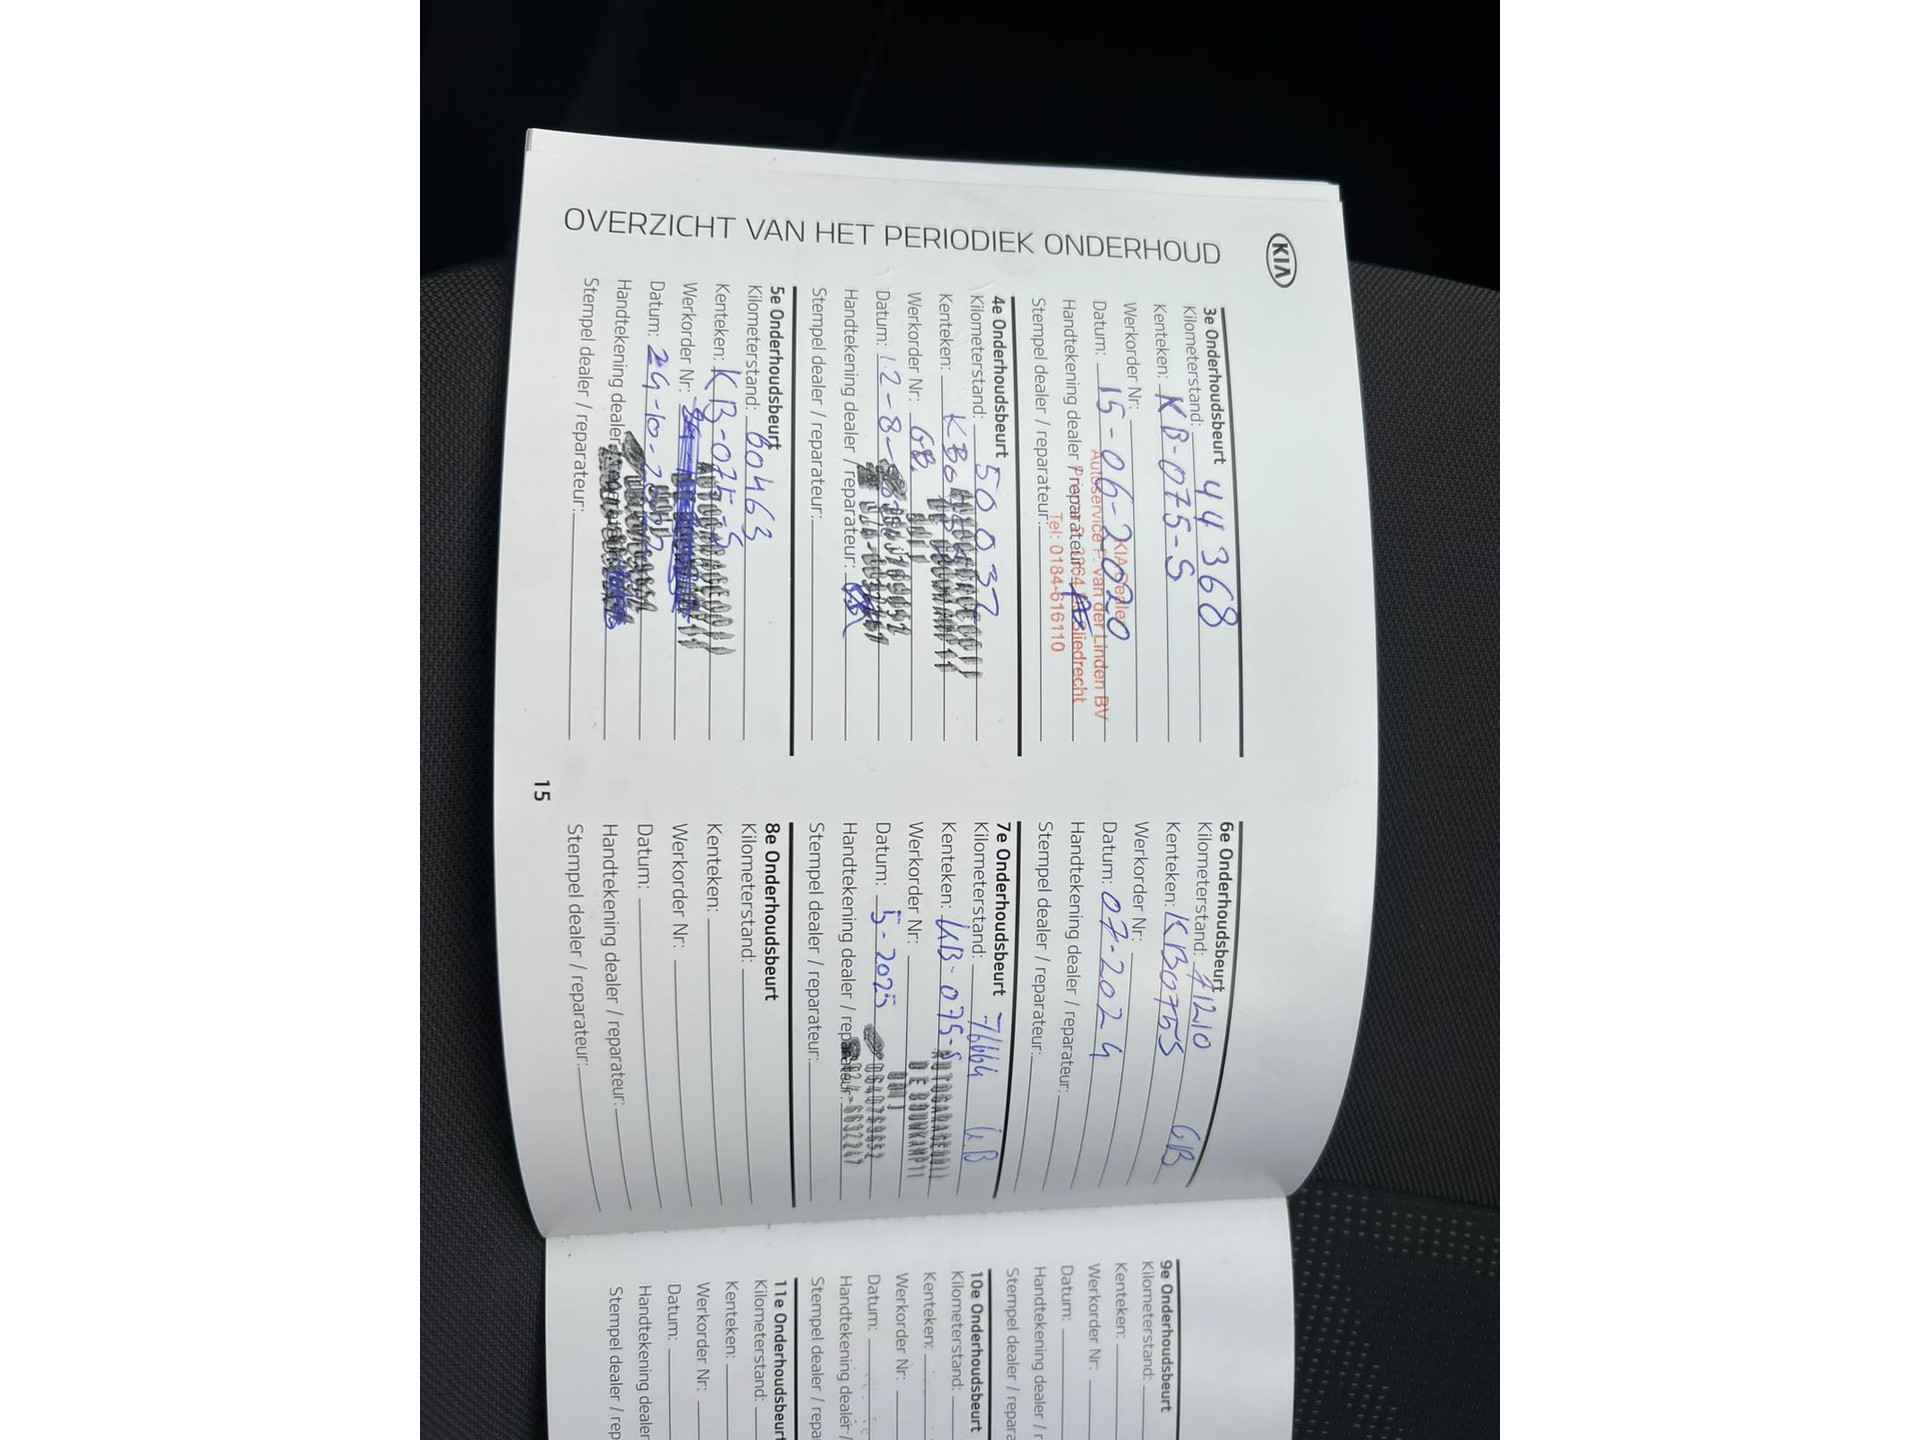 KIA
OVERZICHT VAN HET PERIODIEK ONDERHOUD
3e Onderhoudsbeurt
Kilometerstand: 44368
Kenteken: KB-075-S
Werkorder Nr:
Datum: 15-06-2020
Handtekening dealer / reparateur:
Stempel dealer / reparateur:
KIA Dealer
Autoservice P. van der Linden BV
Sliedrecht
Tel: 0184-616110
4e Onderhoudsbeurt
Kilometerstand: 50037
Kenteken:
Werkorder Nr: GB.
Datum: 12-8-
Handtekening dealer / reparateur:
Stempel dealer / reparateur:
5e Onderhoudsbeurt
Kilometerstand: 60463
Kenteken: KB-075-S
Werkorder Nr:
Datum: 24-10-
Handtekening dealer / reparateur:
Stempel dealer / reparateur:
6e Onderhoudsbeurt
Kilometerstand: 71210
Kenteken: KB075S GB
Werkorder Nr:
Datum: 07-2024
Handtekening dealer / reparateur:
Stempel dealer / reparateur:
7e Onderhoudsbeurt
Kilometerstand: 76664 GB
Kenteken: KB-075-S
Werkorder Nr:
Datum: 5-2025
Handtekening dealer / reparateur:
Stempel dealer / reparateur:
DE BOUWKAMP 11
8e Onderhoudsbeurt
Kilometerstand:
Kenteken:
Werkorder Nr:
Datum:
Handtekening dealer / reparateur:
Stempel dealer / reparateur:
15
9e Onderhoudsbeurt
Kilometerstand:
Kenteken:
Werkorder Nr:
Datum:
Handtekening dealer / r
Stempel dealer / repara
10e Onderhoudsbeurt
Kilometerstand:
Kenteken:
Werkorder Nr:
Datum:
Handtekening dealer /
Stempel dealer / repa
11e Onderhoudsbeurt
Kilometerstand:
Kenteken:
Werkorder Nr:
Datum:
Handtekening dealer
Stempel dealer / rep